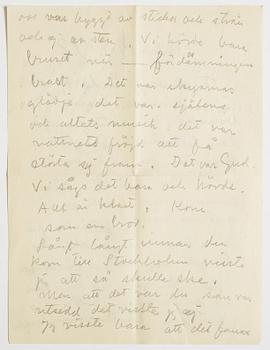 oss var byggt av stickor och strån
och ej av sten. Vi hörde bara
bruset när — fördämningen
brast. Det var skyarnas
glädje det var själens
och alltets musik det var
naturens fröjd att få
störta sig fram. Det var Gud.
Vi sågo det bara och hörde.
Allt är klart. Kom
som en bror.
Långt långt innan du
kom till Stockholm visste
jag att så skulle ske.
Men att det var du som var
utsedd det visste jag ej
Jag visste bara att det fanns